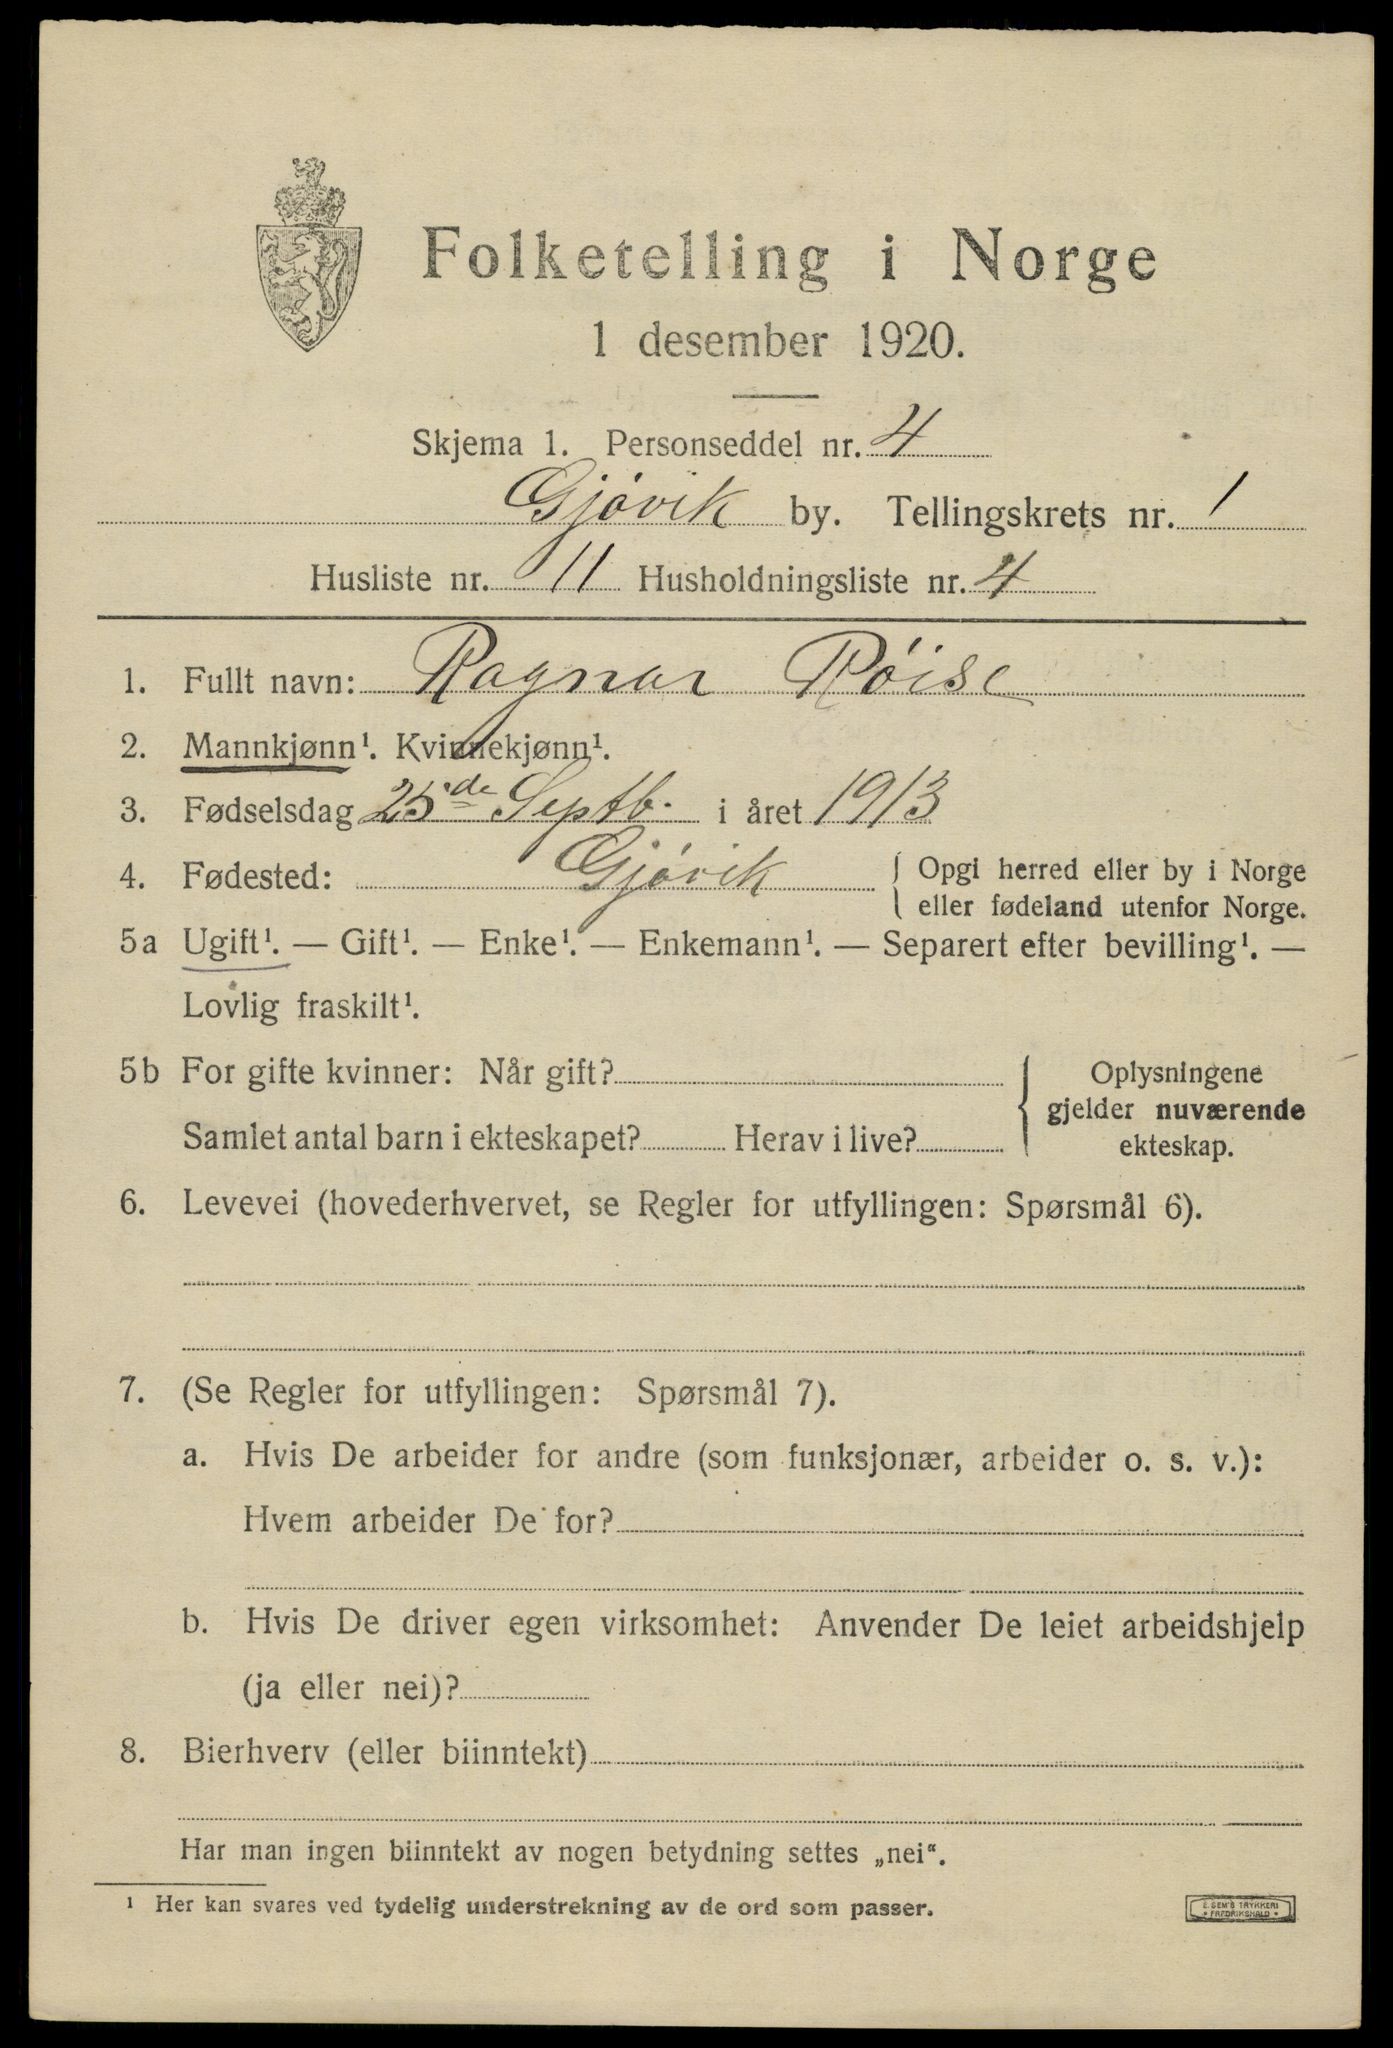 Folketelling i Norge
1 desember 1920.
Skjema 1. Personseddel nr. 4
Gjövik by. Tellingskrets nr. 1
Husliste nr. 11 Husholdningsliste nr. 4
1. Fullt navn: Ragnar Röise
2. Mannkjønn¹. Kvinnekjønn¹.
3. Fødselsdag 25de Septb. i året 1913
4. Fødested: Gjövik { Opgi herred eller by i Norge
eller fødeland utenfor Norge.
5a Ugift¹. — Gift¹. — Enke¹. — Enkemann¹. — Separert efter bevilling¹. —
Lovlig fraskilt¹.
5b For gifte kvinner: Når gift? { Oplysningene
gjelder nuværende
Samlet antal barn i ekteskapet? Herav i live? ekteskap.
6. Levevei (hovederhvervet, se Regler for utfyllingen: Spørsmål 6).
7. (Se Regler for utfyllingen: Spørsmål 7).
a. Hvis De arbeider for andre (som funksjonær, arbeider o. s. v.):
Hvem arbeider De for?
b. Hvis De driver egen virksomhet: Anvender De leiet arbeidshjelp
(ja eller nei)?
8. Bierhverv (eller biinntekt)
Har man ingen biinntekt av nogen betydning settes „nei“.
¹ Her kan svares ved tydelig understrekning av de ord som passer.
E. SEM'S TRYKKERI
* FREDRIKSHALD *